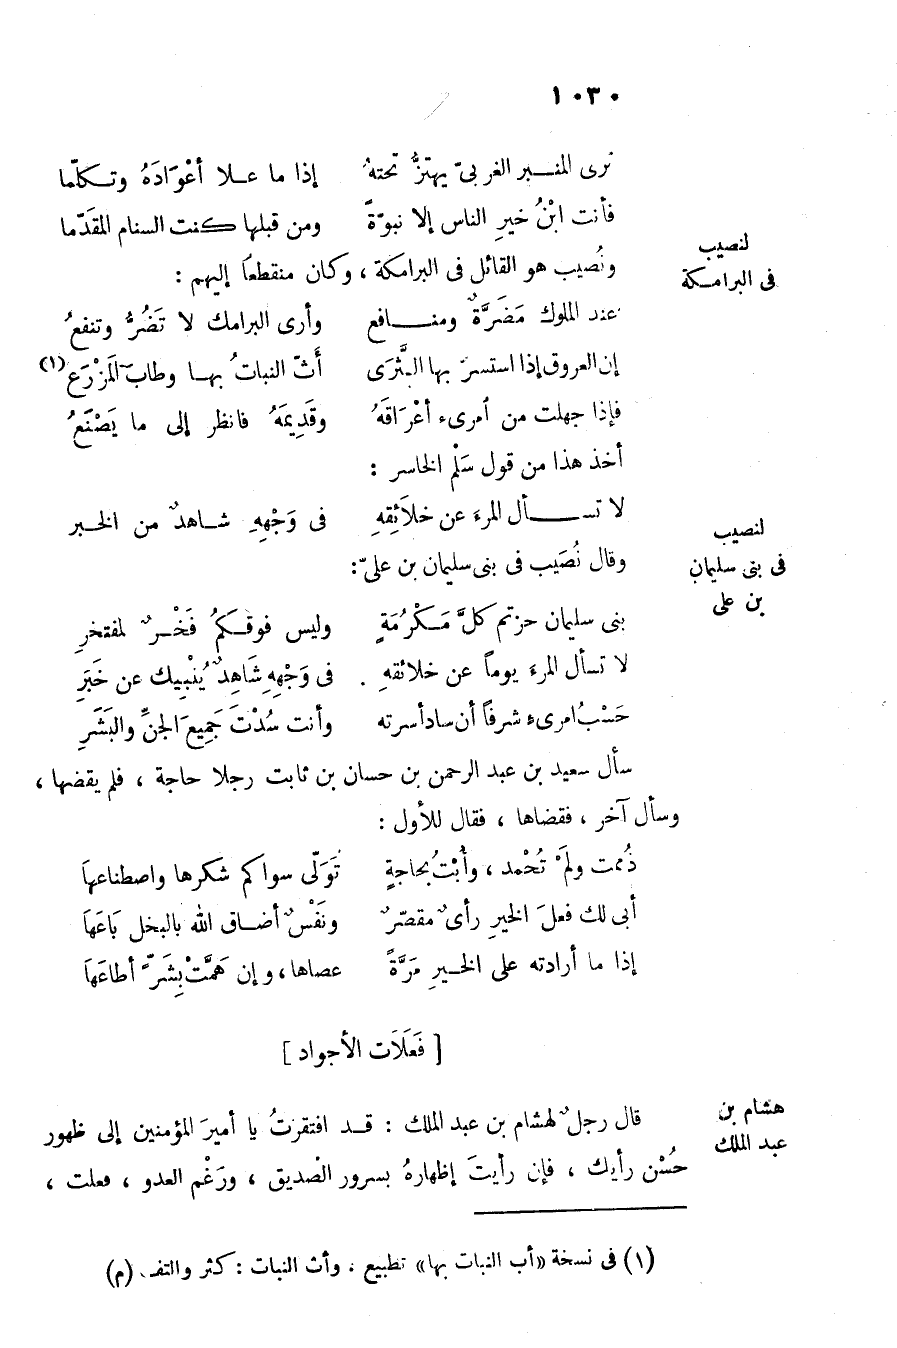 ١٠٣٠
ترى المنـــبر الغربىّ يهتزُّ تحتهُ إذا ما عــلا أعْوَادَهُ وتــكلّما
فأنت ابْنُ خيرِ الناس إلا نبوّةً ومن قبلها كنت السنام المقَدّما
لنصيب
فى البرامكة
ونُصيب هو القائل فى البرامكة ، وكان منقطعاً إليهم :
عند الملوك مَضَرَّةٌ ومنــــافع وأرى البرامك لا تَضُرُّ وتنفعُ
إن العروق إذا استسرّ بها الثَّرَى أَثّ النباتُ بهـا وطابَ المَزْرَع (١)
فإذا جهلت من أمرىء أعْرَاقَهُ وقَدِيمَهُ فانظر إلى ما يَصْنَعُ
أخذ هذا من قول سَلْم الخاسر :
لا تســـــأل المرءَ عن خلاَئِقِهِ فى وَجْهِهِ شـاهدٌ من الخـبر
لنصيب
فى بنى سليمان
بن على
وقال نُصَيب فى بنى سليمان بن علىّ :
بنى سليمان حزتم كلَّ مَـكْرُمَةٍ وليس فوقـكمُ فَخْـرٌ لمفتخرِ
لا تسأل المرءَ يوماً عن خلائقهِ . فى وَجْهِهِ شَاهِدٌ يُنْبِيك عن خَبَرِ
حَسْبُ امرىء شرفاً أن ساد أسرته وأنت سُدْتَ جَمِيعَ الجنِّ والبَشَرِ
سأل سعيد بن عبد الرحمن بن حسان بن ثابت رجلا حاجة ، فلم يقضها ،
وسأل آخر ، فقضاها ، فقال للأول :
ذُممت ولَمْ تُحْمد ، وأُبْتُ بحاجةٍ تَوَلّى سواكم شكرها واصطناعها
أبى لك فعلَ الخيرِ رأىٌ مقصّرٌ ونَفْسٌ أضـاق الله بالبخل بَاعَهَا
إذا ما أرادته على الخـيرِ مَرَّةً عصاها ، وإن هَمَّتْ بِشَرٍّ أطاعَهَا
[ فَعَلَات الأجواد ]
هشام بن
عبد الملك
قال رجلٌ لهشام بن عبد الملك : قـد افتقرتُ يا أميرَ المؤمنين إلى ظهور
حُسْن رأيك ، فإن رأيتَ إظهارهُ بسرور الصديق ، ورَغْم العدو ، فعلت ،
(١) فى نسخة «أب النبات بها» تطبيع ، وأث النبات : كثر والتف . (م)